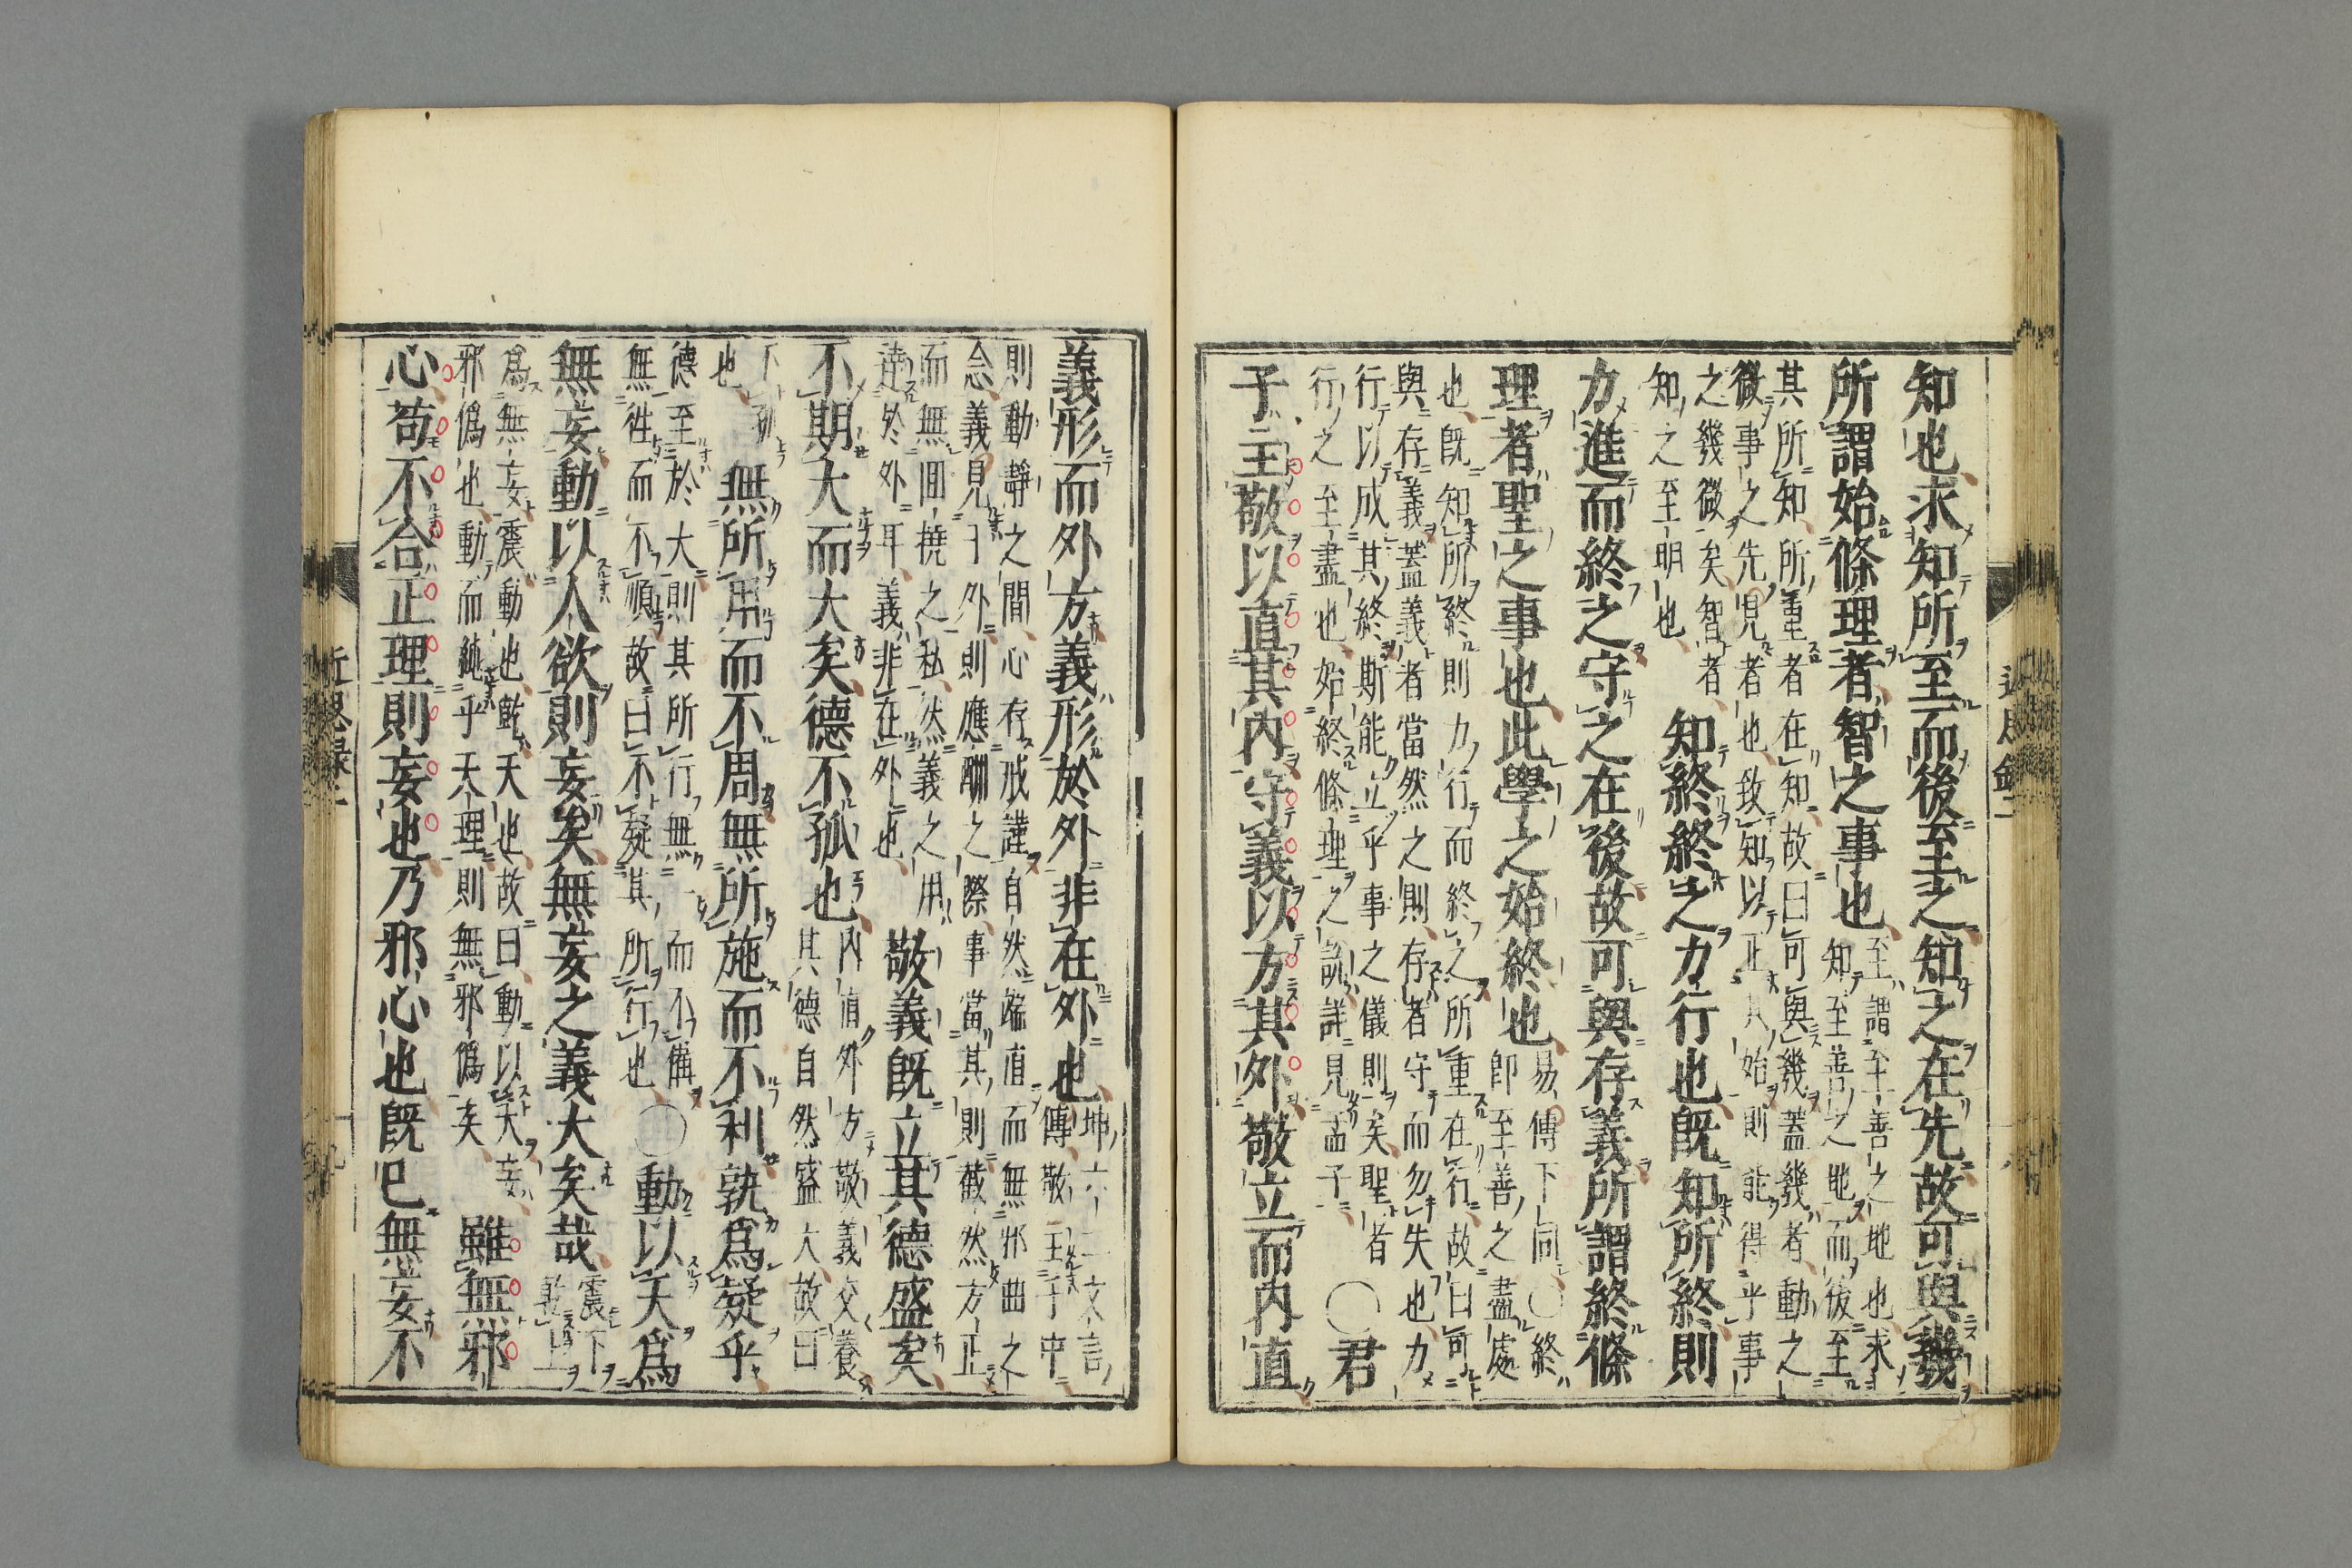 知也求知所至而後至之知之在先故可與幾
所謂始條理者智之事也至謂至善之地也求
知至善之地而後至
其所知所重者在知故曰可與幾蓋幾者動之
微事之先見者也致知以正其始則能得乎事
之幾微矣智者
知之至明也
知終終之力行也既知所終則
力進而終之守之在後故可與存義所謂終條
理者聖之事也此學之始終也易傳下同〇終
即至善之盡處
也既知所終則力行而終之所重在行故曰可
與存義蓋義者當然之則存者守而勿失也力
行以成其終斯能立乎事之儀則矣聖者
行之至盡也始終條理之説詳見孟子
〇君
子主敬以直其內守義以方其外敬立而内直
近思錄二
義形而外方義形於外非在外也坤六二文言
傳敬主于中
則動靜之間心存戒謹自然端直而無邪曲之
念義見于外則應酬之際事當其則截然方正
而無回撓之私然義之用
達於外耳義非在外也
敬義既立其德盛矣
不期大而大矣德不孤也內直外方敬義交養
其德自然盛大故曰
不孤
也
無所用而不周無所施而不利孰爲疑乎
德至於大則其所行無一而不備
無往而不順故曰不疑其所行也
〇動以天爲
無妄動以人欲則妄矣無妄之義大矣哉震下
乾上
爲無妄震動也乾天也故曰動以天妄
邪僞也動而純乎天理則無邪僞矣
雖無邪
心苟不合正理則妄也乃邪心也既已無妄不
近思錄二